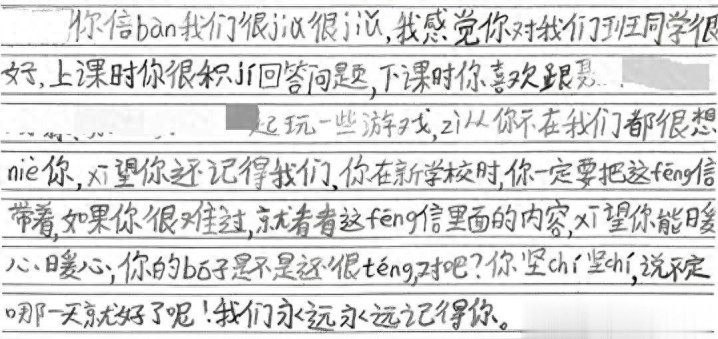 你倍bàn我们很jiǔ很jiǔ,我感觉你对我们班同学很
好,上课时你很积jí回答问题,下课时你喜欢跟
起玩一些游戏,zì从你不在我们都很想
niè你,xī望你还记得我们,你在新学校时,你一定要把这fēng信
带着,如果你很难过,就看看这fēng信里面的内容,xī望你能暖
心暖心,你的bó子是不是还很téng,对吧?你坚chí坚chí,说不定
哪一天就好了呢!我们永远永远记得你。